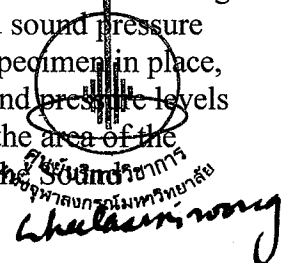 sound pressure
pecimen in place,
nd pressure levels
the area of the
he Sound
ศูนย์บริการวิชาการ
จุฬาลงกรณ์มหาวิทยาลัย